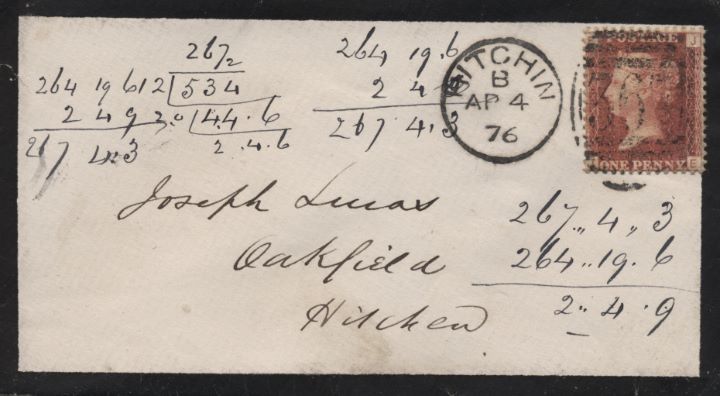 267
2
264 19 6
12 534
2 4 9
2.0 44.6
267 4.3
2.4.6
264 19.6
2 4.9
267 4.3
HITCHIN
B
AP 4
76
J
E
ONE PENNY
Joseph Lucas
Oakfield
Hitchen
267 ,, 4 ,, 3
264 .. 19 . 6
2 .. 4 . 9